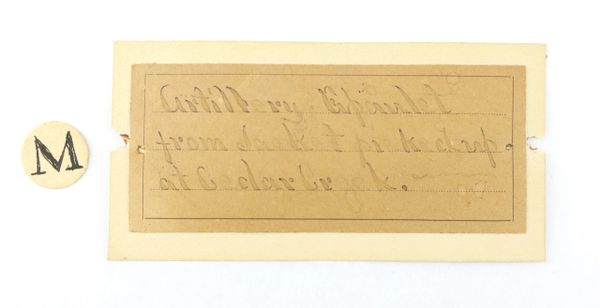 M
Artillery Epaulet
from Jacket picked up
at Cedar Creek.